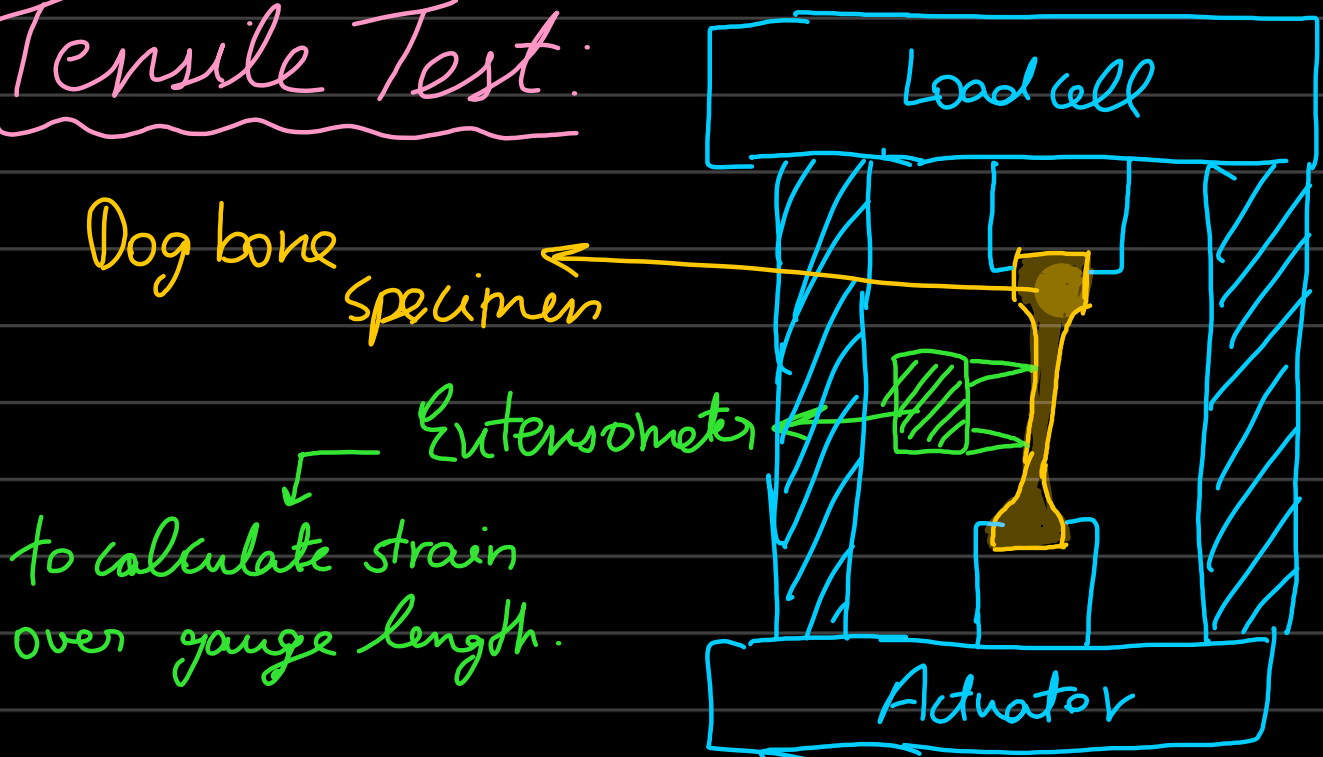 Tensile Test:
Load cell
Dog bone
specimen
Extensometer
to calculate strain
over gauge length.
Actuator